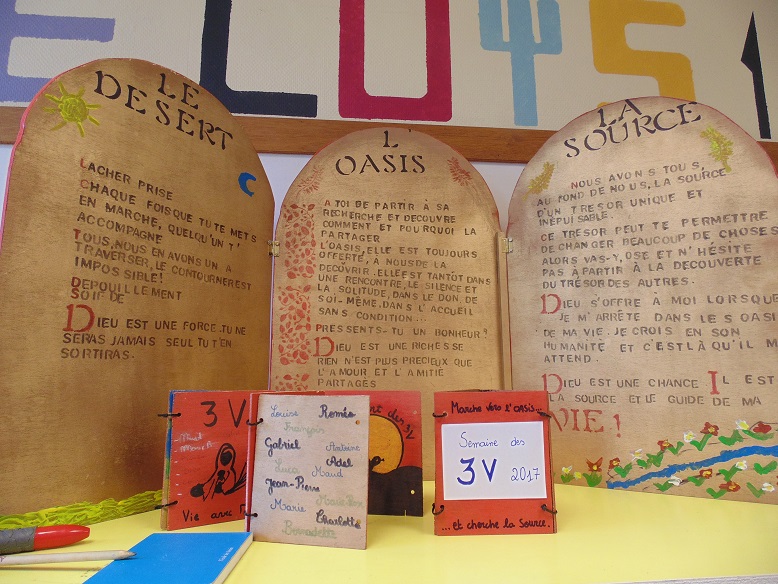 LE
DESERT
LACHER PRISE
CHAQUE FOIS QUE TU TE METS
EN MARCHE, QUELQU'UN T'
ACCOMPAGNE
TOUS, NOUS EN AVONS UN A
TRAVERSER, LE CONTOURNER EST
IMPOSSIBLE!
DEPOUILLEMENT
SOIF DE
DIEU EST UNE FORCE. TU NE
SERAS JAMAIS SEUL TU T'EN
SORTIRAS.
L'
OASIS
A TOI DE PARTIR À SA
RECHERCHE ET DECOUVRE
COMMENT ET POURQUOI LA
PARTAGER
L'OASIS, ELLE EST TOUJOURS
OFFERTE, A NOUS DE LA
DECOVRIR. ELLE EST TANTÔT DANS
UNE RENCONTRE, LE SILENCE ET
LA SOLITUDE, DANS LE DON DE
SOI-MÊME, DANS L'ACCUEIL
SANS CONDITION...
PRESSENTS-TU UN BONHEUR?
DIEU EST UNE RICHESSE
RIEN N'EST PLUS PRECIEUX QUE
L'AMOUR ET L'AMITIÉ
PARTAGÉS
LA
SOURCE
NOUS AVONS TOUS,
AU FOND DE NOUS, LA SOURCE
D'UN TRESOR UNIQUE ET
INEPUISABLE.
CE TRESOR PEUT TE PERMETTRE
DE CHANGER BEAUCOUP DE CHOSES
ALORS VAS-Y, OSE ET N'HÉSITE
PAS À PARTIR À LA DECOUVERTE
DU TRÉSOR DES AUTRES.
DIEU S'OFFRE À MOI LORSQUE
JE M'ARRÊTE DANS LES OASI
DE MA VIE. JE CROIS EN SON
HUMANITÉ ET C'EST LÀ QU'IL M
ATTEND.
DIEU EST UNE CHANCE IL EST
LA SOURCE ET LE GUIDE DE MA
VIE!
3V
Vie avec
Louise Roméo
François
Gabriel Antoine
Luca Adel
Maud
Jean-Pierre
Marie
Charlotte
Bernadette
Marche vers l'OASIS...
Semaine des
3V 2017
...et cherche la Source.